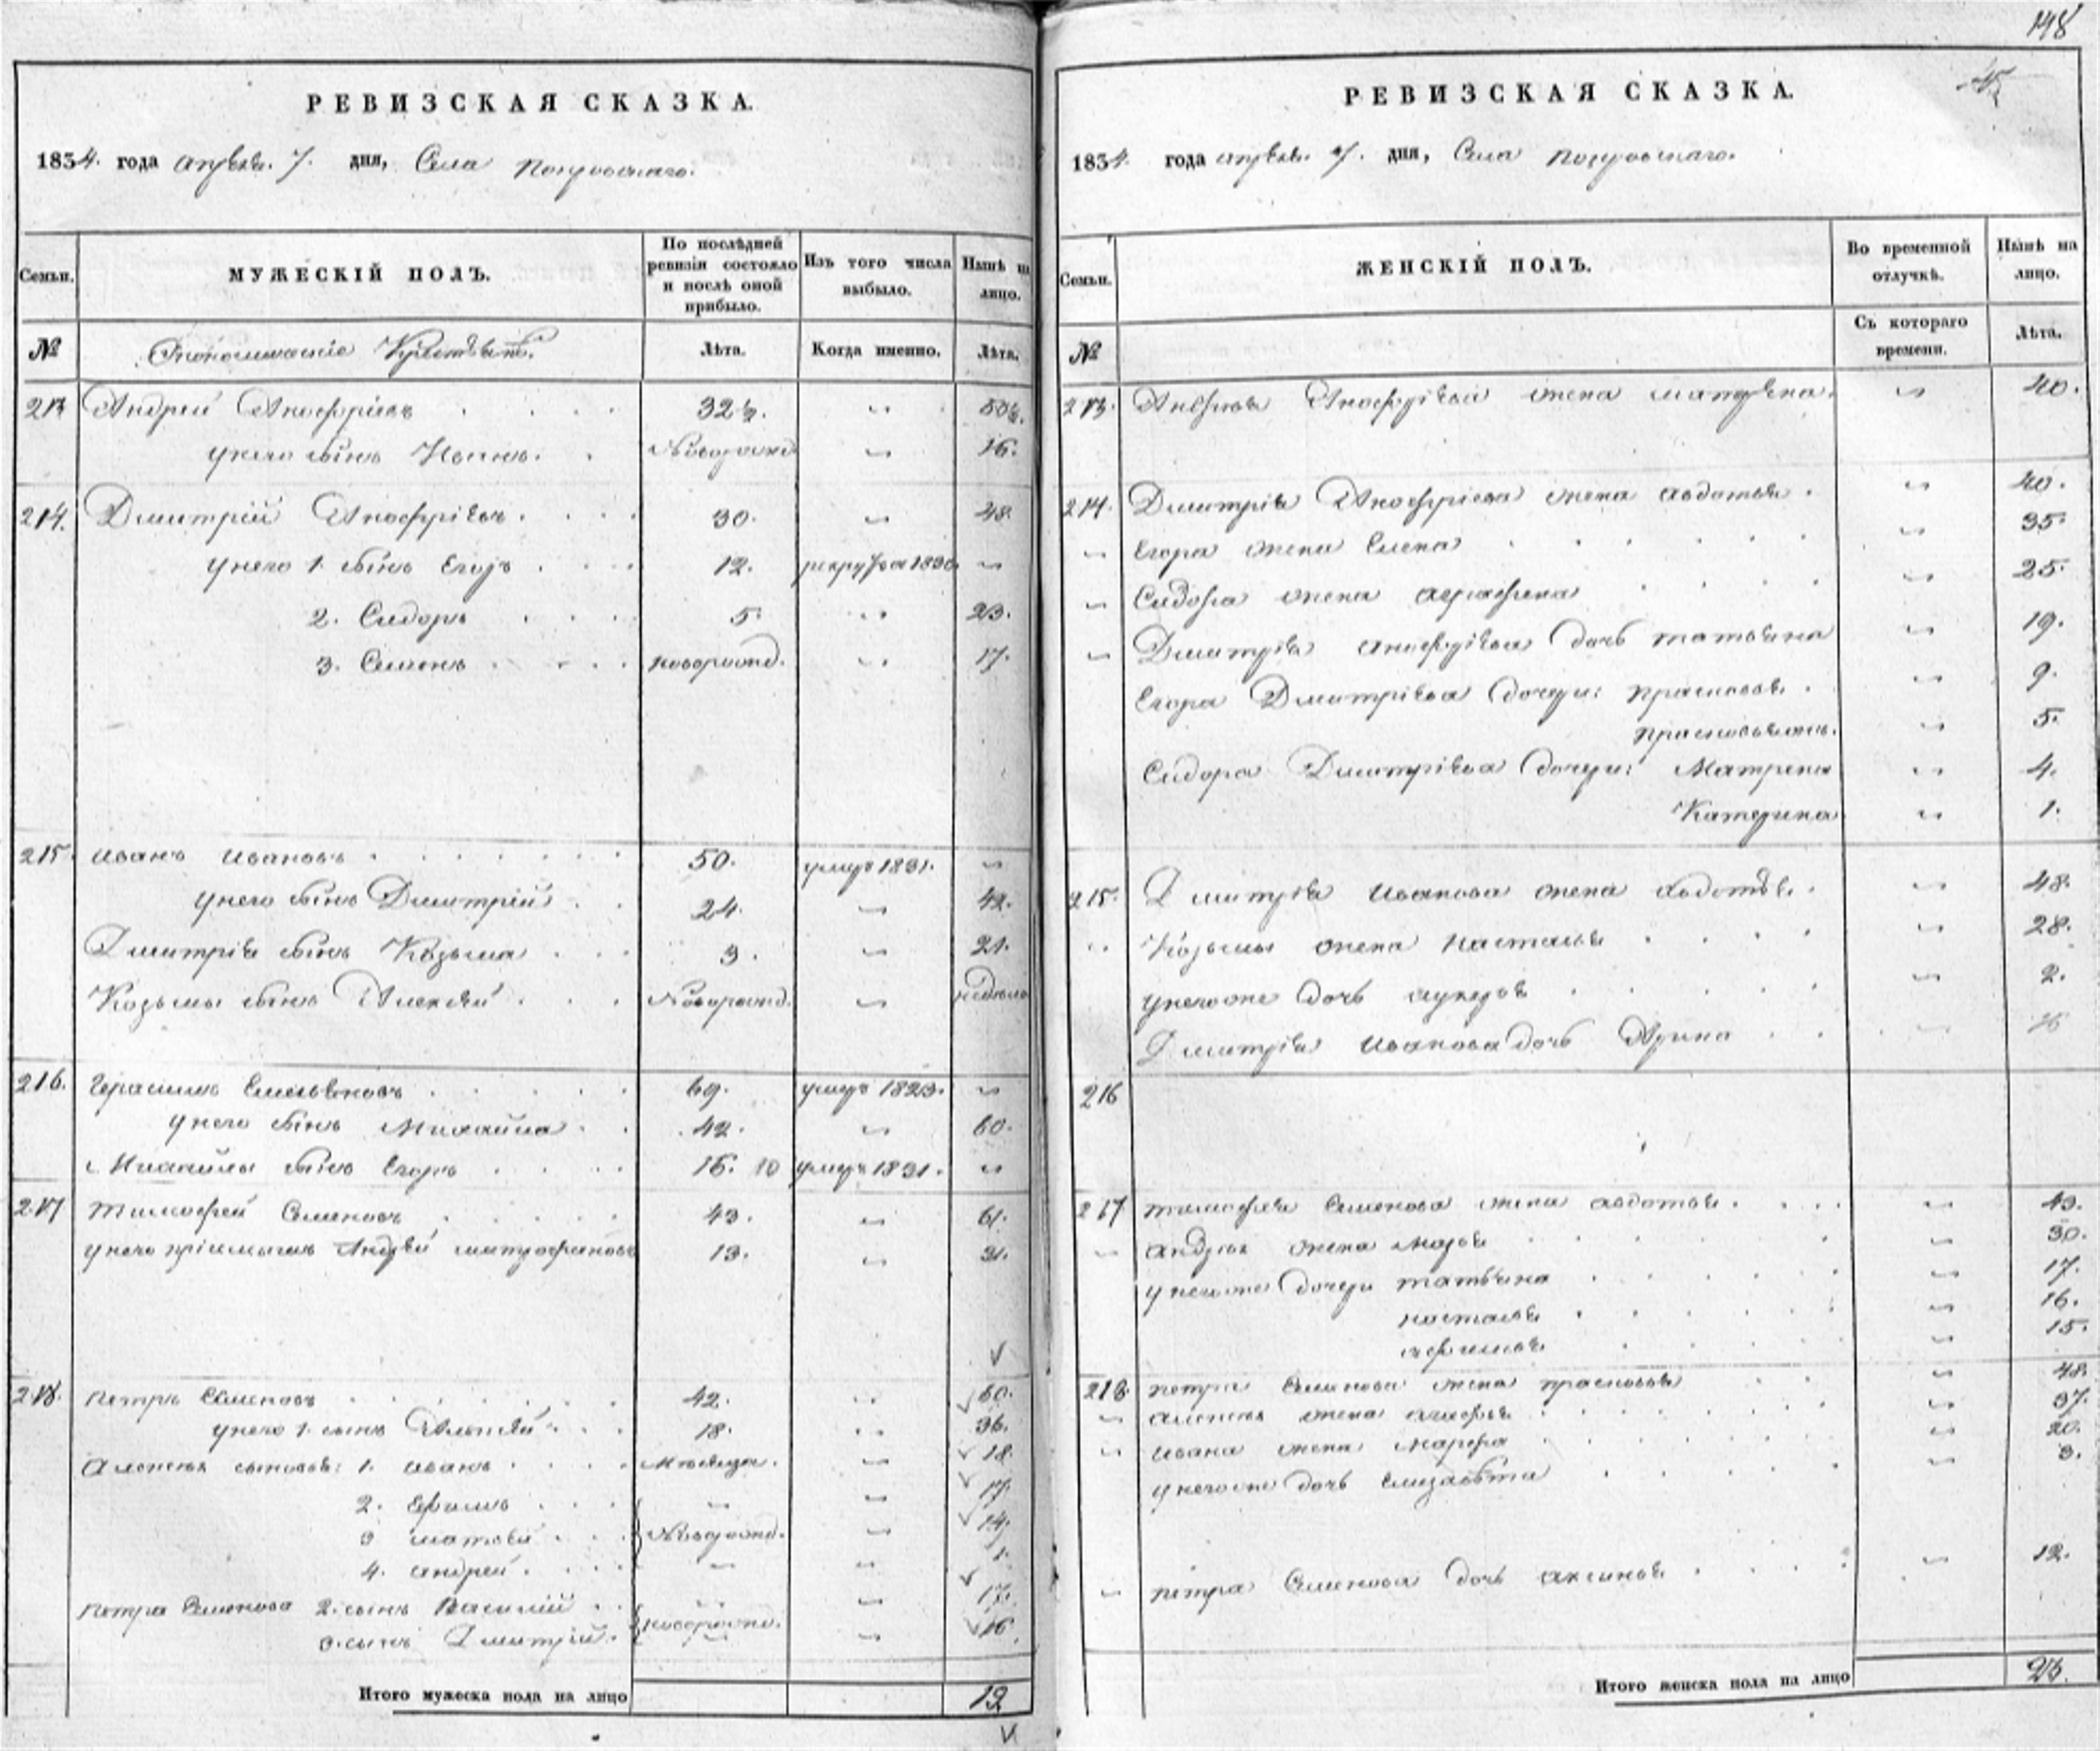 148
РЕВИЗСКАЯ СКАЗКА.
1834. года апреля. 7. дня, Села Покровскаго.
Семьи.
МУЖЕСКІЙ ПОЛЪ.
По послѣдней ревизіи состояло и послѣ оной прибыло.
Изъ того числа выбыло.
Нынѣ на лицо.
№
Экономические Крестьяне.
Лѣта.
Когда именно.
Лѣта.
213 Андрей Анофріевъ 32½. 50½.
у него сынъ Иванъ. Новорожд. 16.
214. Дмитрій Анофріевъ. 30. 48.
у него 1. сынъ Егоръ 12. рекрутъ 1830
2. Сидоръ 5. 23.
3. Семенъ новорожд. 17.
215. Иванъ Ивановъ 50. умеръ 1831.
у него сынъ Дмитрій 24. 42.
Дмитрія сынъ Козьма 3. 21.
Козьмы сынъ Алексѣй Новорожд. недѣля
216. Герасимъ Емельяновъ 69. умеръ 1823.
у него сынъ Михайла 42. 60.
Михайлы сынъ Егоръ 16. умеръ 1831.
217 Тимофей Семеновъ 43. 61.
у него пріемышъ Андрей Митрофановъ 13. 31.
218. Петръ Семеновъ 42. 60.
у него 1. сынъ Алексѣй 18. 36.
Алексѣя сыновья: 1. Иванъ 18.
2. Ефимъ 17.
3 Матвей Новорожд. 14.
4. Андрей 1.
Петра Семенова 2. сынъ Василій 17.
3. сынъ Дмитрій. новорожд. 16.
Итого мужеска пола на лицо 19
РЕВИЗСКАЯ СКАЗКА.
1834. года апреля. 7. дня, Села Покровскаго.
Семьи.
ЖЕНСКІЙ ПОЛЪ.
Во временной отлучкѣ.
Нынѣ на лицо.
№
Съ котораго времени.
Лѣта.
213. Андрея Анофріева жена Матрена. 40.
214. Дмитрія Анофріева жена Авдотья. 40.
Егора жена Елена 35.
Сидора жена Аграфена 25.
Дмитрія Анофріева дочь Татьяна 19.
Егора Дмитріева дочери: Прасковья. 9.
Прасковья жъ. 5.
Сидора Дмитріева дочери: Матрена 4.
Катерина 1.
215. Дмитрія Иванова жена Авдотья. 48.
Козьмы жена Насталья 28.
у него же дочь Лукерья 2.
Дмитрія Иванова дочь Арина 16
216
217 Тимофея Семенова жена Авдотья. 43.
Андрея жена Марья 30.
у него же дочери Татьяна 17.
Насталья 16.
Афимья 15.
218. Петра Семенова жена Прасковья 48.
Алексея жена 37.
Ивана жена Марфа 20.
у него же дочь Елизавета 3.
Петра Семенова дочь Аксинья. 12.
Итого женска пола на лицо 23.